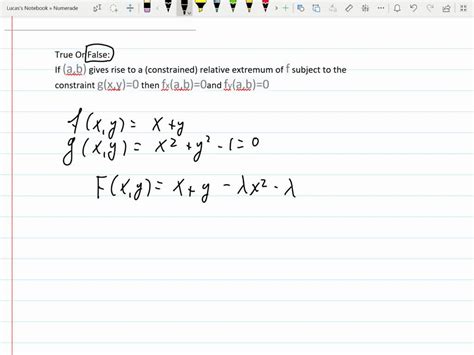 Lucas's Notebook » Numerade
True Or False:
If (a,b) gives rise to a (constrained) relative extremum of f subject to the
constraint g(x,y)=0 then fx(a,b)=0and fy(a,b)=0
f(x,y) = x+y
g(x,y) = x² + y² - 1 = 0
F(x,y) = x+y - λx² - λ